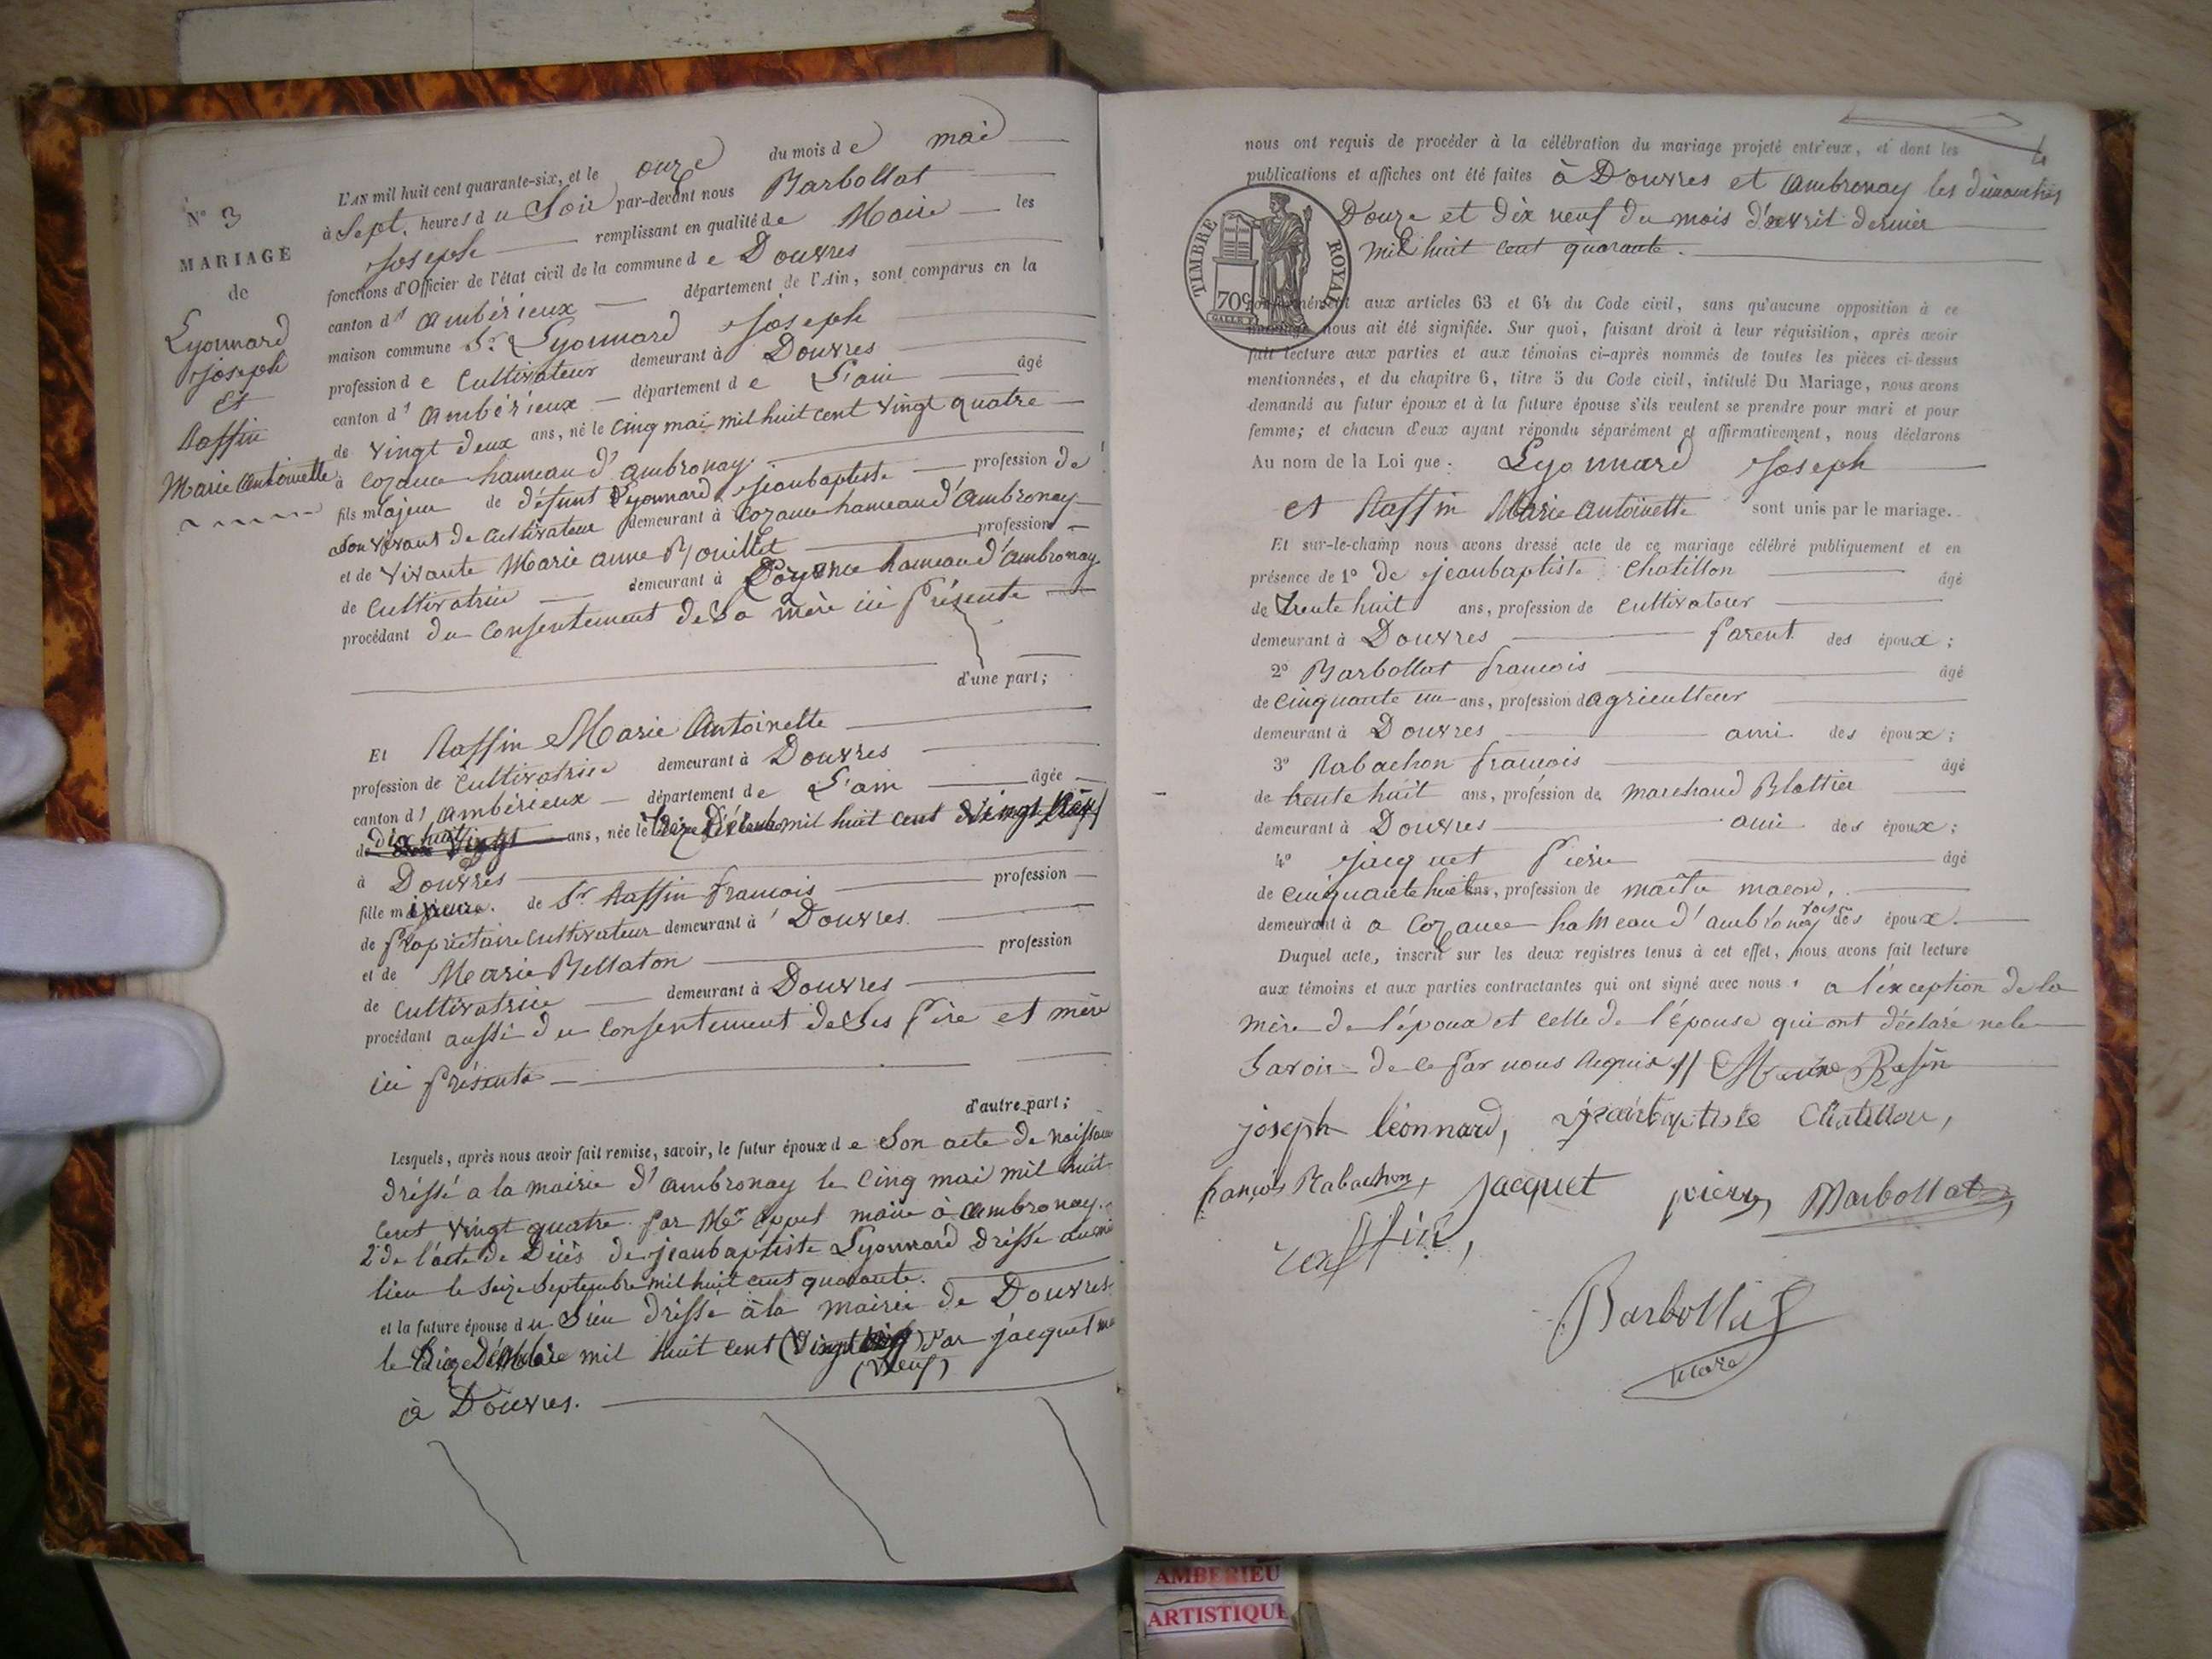 N° 3
MARIAGE
de
Lyonnard
Joseph
Et
Raffin
Marie Antoinette
L'AN mil huit cent quarante-six, et le onze du mois de mai
à Sept heures du Soir par-devant nous Barbollat
Joseph remplissant en qualité de Maire les
fonctions d'Officier de l'état civil de la commune de Douvres
canton d'Ambérieux département de l'Ain, sont comparus en la
maison commune Sr. Lyonnard Joseph
profession de Cultivateur demeurant à Douvres
canton d'Ambérieux département de L'ain âgé
de Vingt deux ans, né le Cinq mai mil huit cent vingt quatre
à Cozance hameau d'Ambronay.
fils majeur de défunt Lyonnard Jeanbaptiste profession de
Son vivant de Cultivateur demeurant à Cozance hameau d'Ambronay
et de vivante Marie Anne Bouillet profession
de Cultivatrice demeurant à Cozance hameau d'Ambronay
procédant du Consentement de Sa mère ici Présente
d'une part;
Et Raffin Marie Antoinette
profession de Cultivatrice demeurant à Douvres
canton d'Ambérieux département de L'ain âgée
de dix huit ans, née le mil huit cent Vingt
à Douvres
fille mineure. de Sr Raffin francois profession
de Propriétaire Cultivateur demeurant à Douvres.
et de Marie Bellaton profession
de Cultivatrice demeurant à Douvres
procédant aussi du Consentement de Ses Père et mère
ici Présents
d'autre part;
Lesquels, après nous avoir fait remise, savoir, le futur époux de Son acte de naissance
dréssé a la mairie d'Ambronay le Cinq mai mil huit
Cent Vingt quatre par Mer maire à Ambronay.
2° de l'acte de Décès de Jeanbaptiste Lyonnard dréssé au même
lieu le Seize Septembre mil huit cent quarante.
et la future épouse du Sien dréssé à la mairie de Douvres
le mil huit cent (Vingt) par jacquet
(neuf)
à Douvres.
nous ont requis de procéder à la célébration du mariage projeté entr'eux, et dont les
publications et affiches ont été faites à Douvres et Ambronay les dimanches
Douze et dix neuf du mois d'avril dernier
mil huit cent quarante.
TIMBRE ROYAL
70c
conformément aux articles 63 et 64 du Code civil, sans qu'aucune opposition à ce
mariage nous ait été signifiée. Sur quoi, faisant droit à leur réquisition, après avoir
fait lecture aux parties et aux témoins ci-après nommés de toutes les pièces ci-dessus
mentionnées, et du chapitre 6, titre 5 du Code civil, intitulé Du Mariage, nous avons
demandé au futur époux et à la future épouse s'ils veulent se prendre pour mari et pour
femme; et chacun d'eux ayant répondu séparément et affirmativement, nous déclarons
Au nom de la Loi que: Lyonnard Joseph
et Raffin Marie Antoinette sont unis par le mariage.
Et sur-le-champ nous avons dressé acte de ce mariage célébré publiquement et en
présence de 1° de Jeanbaptiste Chatillon âgé
de trente huit ans, profession de Cultivateur
demeurant à Douvres parent des époux;
2° Barbollat francois âgé
de Cinquante un ans, profession d'agriculteur
demeurant à Douvres ami des époux;
3° Rabachon francois âgé
de trente huit ans, profession de marchand Blattier
demeurant à Douvres ami des époux;
4° Jacquet Pierre âgé
de cinquante huit ans, profession de maître macon,
demeurant à a Cozance hameau d'ambronay des époux.
Duquel acte, inscrit sur les deux registres tenus à cet effet, nous avons fait lecture
aux témoins et aux parties contractantes qui ont signé avec nous, a l'exception de la
mère de l'époux et celle de l'épouse qui ont déclaré ne le
Savoir de ce par nous Requis //
joseph léonnard, jeanbaptiste Chatillon,
françois Rabachon, jacquet pierre, Barbollat
raffin,
Barbollat
Maire
AMBERIEU
ARTISTIQUE